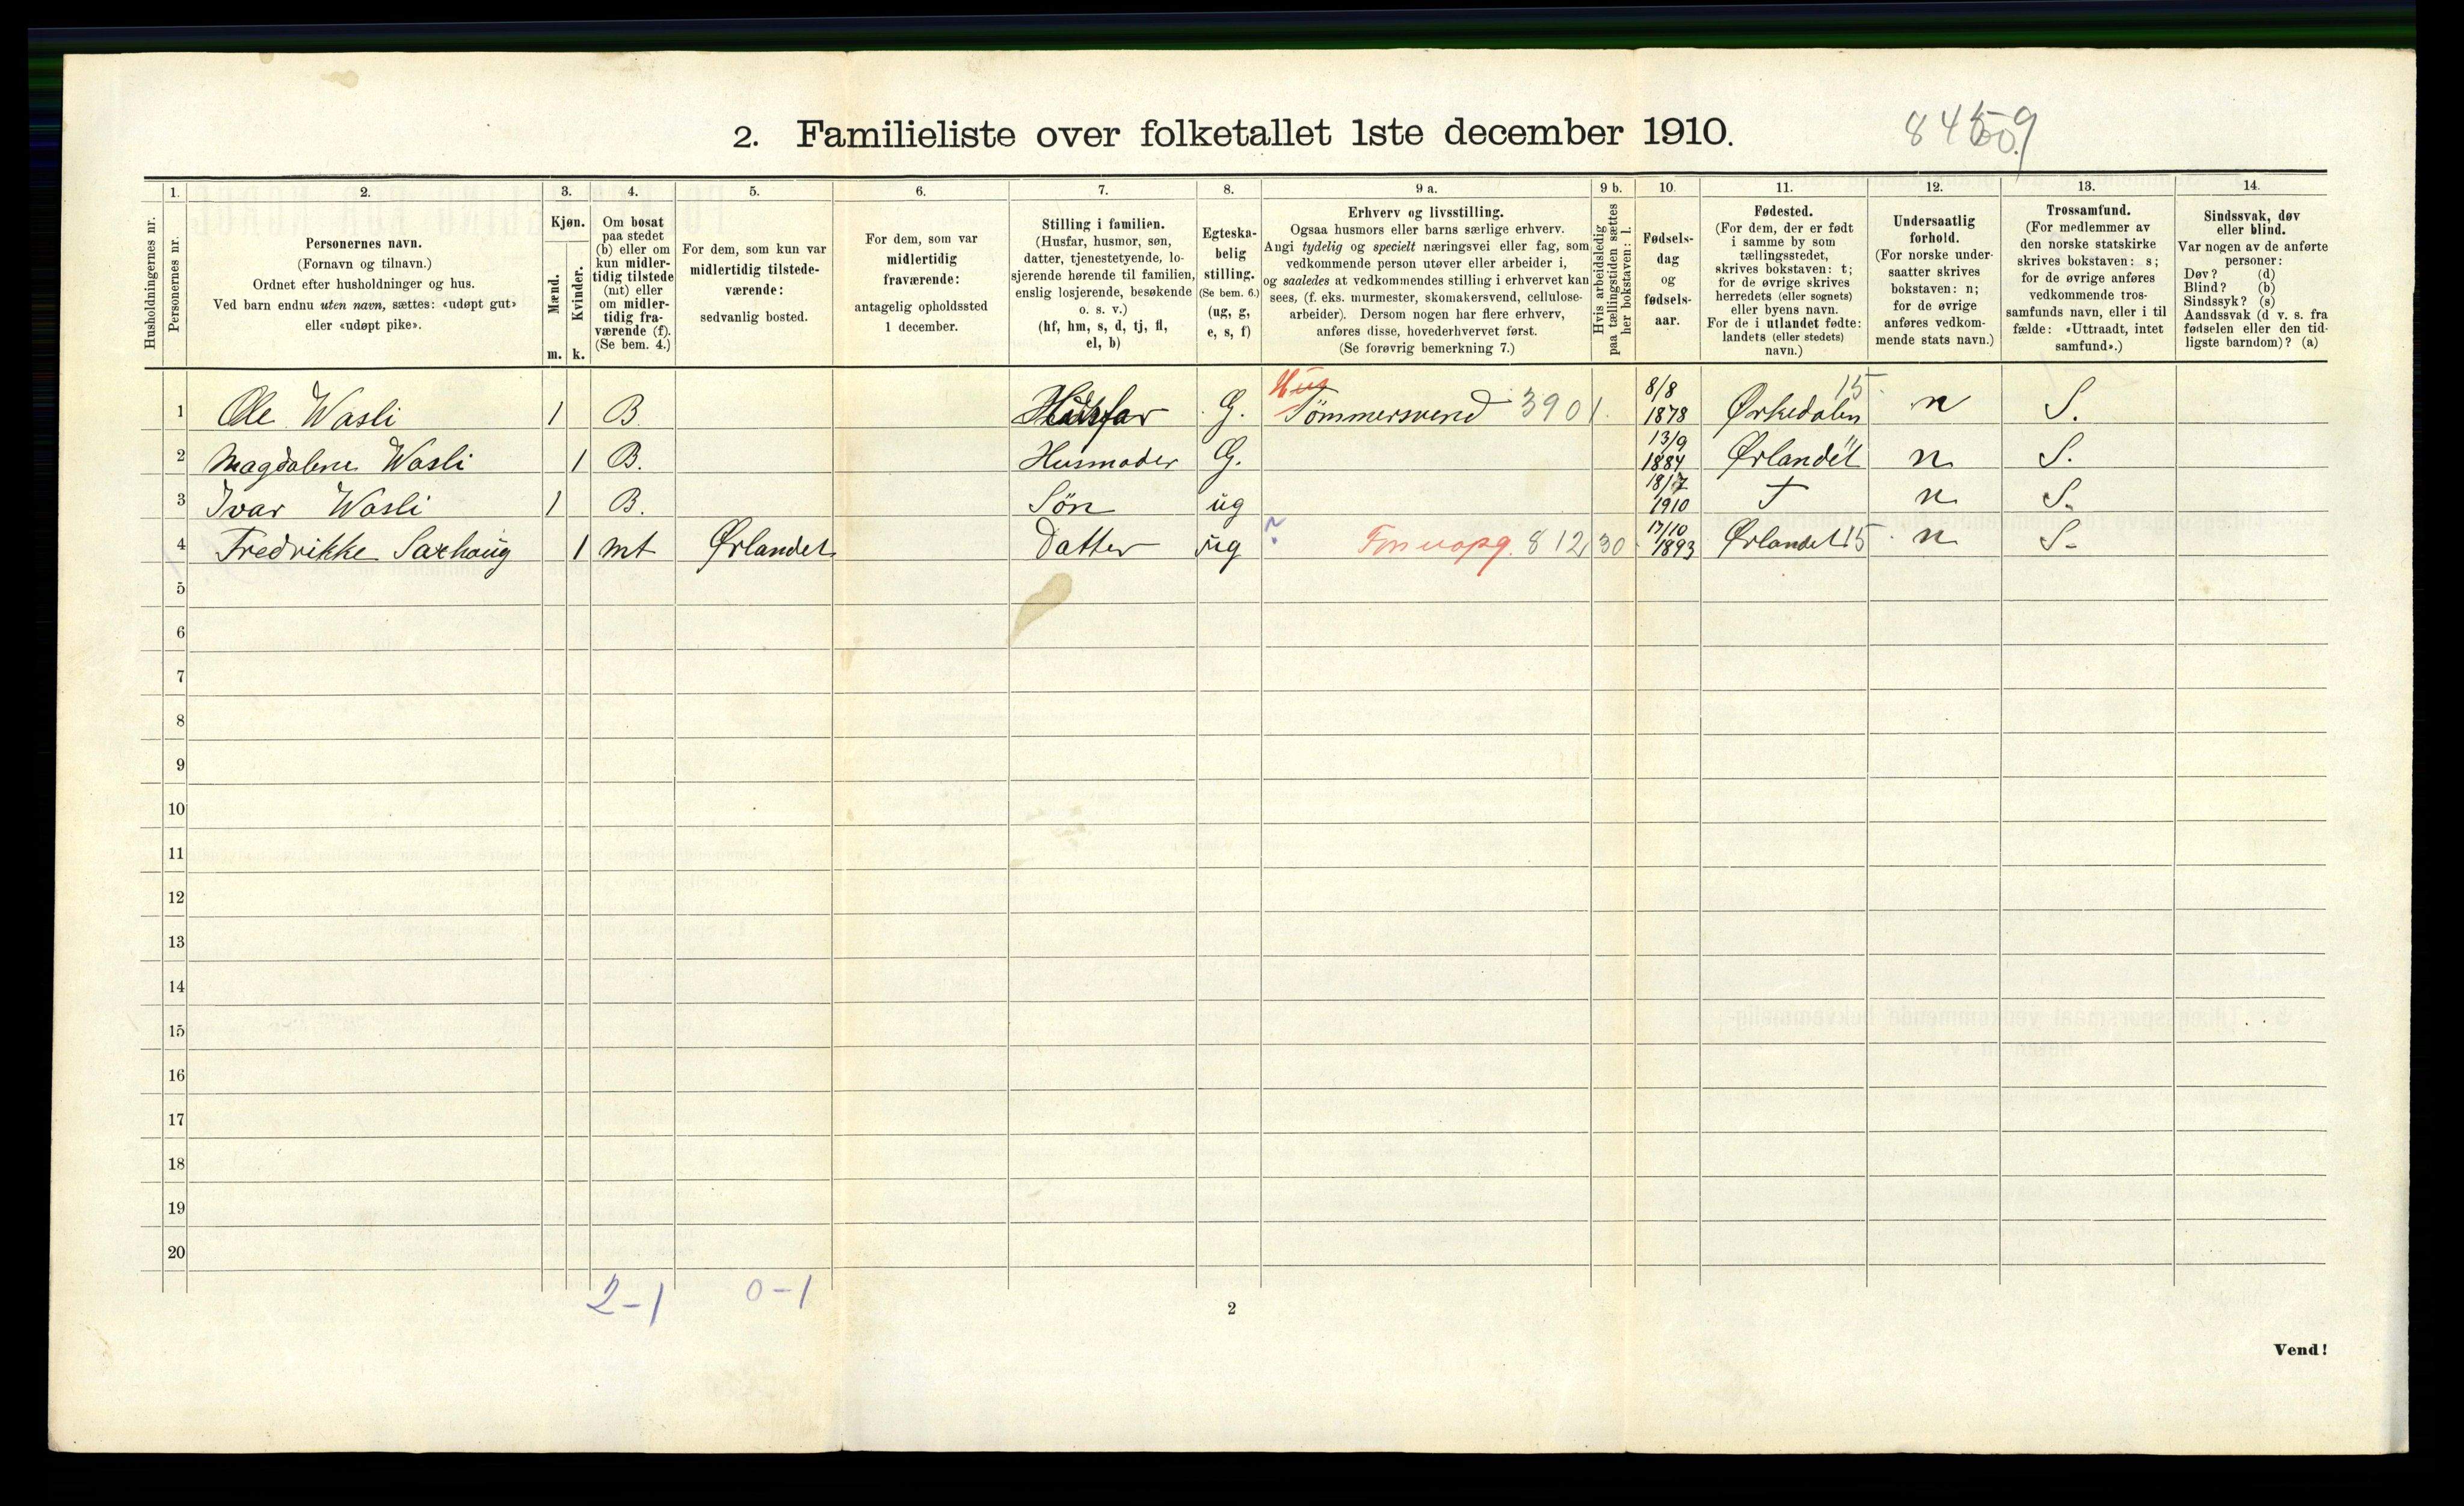 2. Familieliste over folketallet 1ste december 1910.
1. 2. 3. 4. 5. 6. 7. 8. 9 a. 9 b. 10. 11. 12. 13. 14.
Husholdningernes nr.
Personernes nr.
Personernes navn.
(Fornavn og tilnavn.)
Ordnet efter husholdninger og hus.
Ved barn endnu uten navn, sættes: «udøpt gut»
eller «udøpt pike».
Kjøn.
Mænd.
Kvinder.
m. k.
Om bosat
paa stedet
(b) eller om
kun midler-
tidig tilstede
(mt) eller
om midler-
tidig fra-
værende (f).
(Se bem. 4.)
For dem, som kun var
midlertidig tilstede-
værende:
sedvanlig bosted.
For dem, som var
midlertidig
fraværende:
antagelig opholdssted
1 december.
Stilling i familien.
(Husfar, husmor, søn,
datter, tjenestetyende, lo-
sjerende hørende til familien,
enslig losjerende, besøkende
o. s. v.)
(hf, hm, s, d, tj, fl,
el, b)
Egteska-
belig
stilling.
(Se bem. 6.)
(ug, g,
e, s, f)
Erhverv og livsstilling.
Ogsaa husmors eller barns særlige erhverv.
Angi tydelig og specielt næringsvei eller fag, som
vedkommende person utøver eller arbeider i,
og saaledes at vedkommendes stilling i erhvervet kan
sees, (f. eks. murmester, skomakersvend, cellulose-
arbeider). Dersom nogen har flere erhverv,
anføres disse, hovederhvervet først.
(Se forøvrig bemerkning 7.)
Hvis arbeidsledig
paa tællingstiden sættes
her bokstaven: l.
Fødsels-
dag
og
fødsels-
aar.
Fødested.
(For dem, der er født
i samme by som
tællingsstedet,
skrives bokstaven: t;
for de øvrige skrives
herredets (eller sognets)
eller byens navn.
For de i utlandet fødte:
landets (eller stedets)
navn.)
Undersaatlig
forhold.
(For norske under-
saatter skrives
bokstaven: n;
for de øvrige
anføres vedkom-
mende stats navn.)
Trossamfund.
(For medlemmer av
den norske statskirke
skrives bokstaven: s;
for de øvrige anføres
vedkommende tros-
samfunds navn, eller i til
fælde: «Uttraadt, intet
samfund».)
Sindssvak, døv
eller blind.
Var nogen av de anførte
personer:
Døv? (d)
Blind? (b)
Sindssyk? (s)
Aandssvak (d v. s. fra
fødselen eller den tid-
ligste barndom)? (a)
1 Ole Wasli 1 B. Husfar G. Hus Tömmersvend 3901. 8/8 1878 Ørkedalen 15 n S.
2 Magdalene Wasli 1 B. Husmoder G. 13/9 1884 Ørlandet n S.
3 Ivar Wasli 1 B. Sön ug 18/7 1910 T n S.
4 Fredrikke Saxhaug 1 mt Ørlandet Datter ug 812 30 17/10 1893 Ørlandet 15 n S.
5
6
7
8
9
10
11
12
13
14
15
16
17
18
19
20
2-1 0-1
2
Vend!